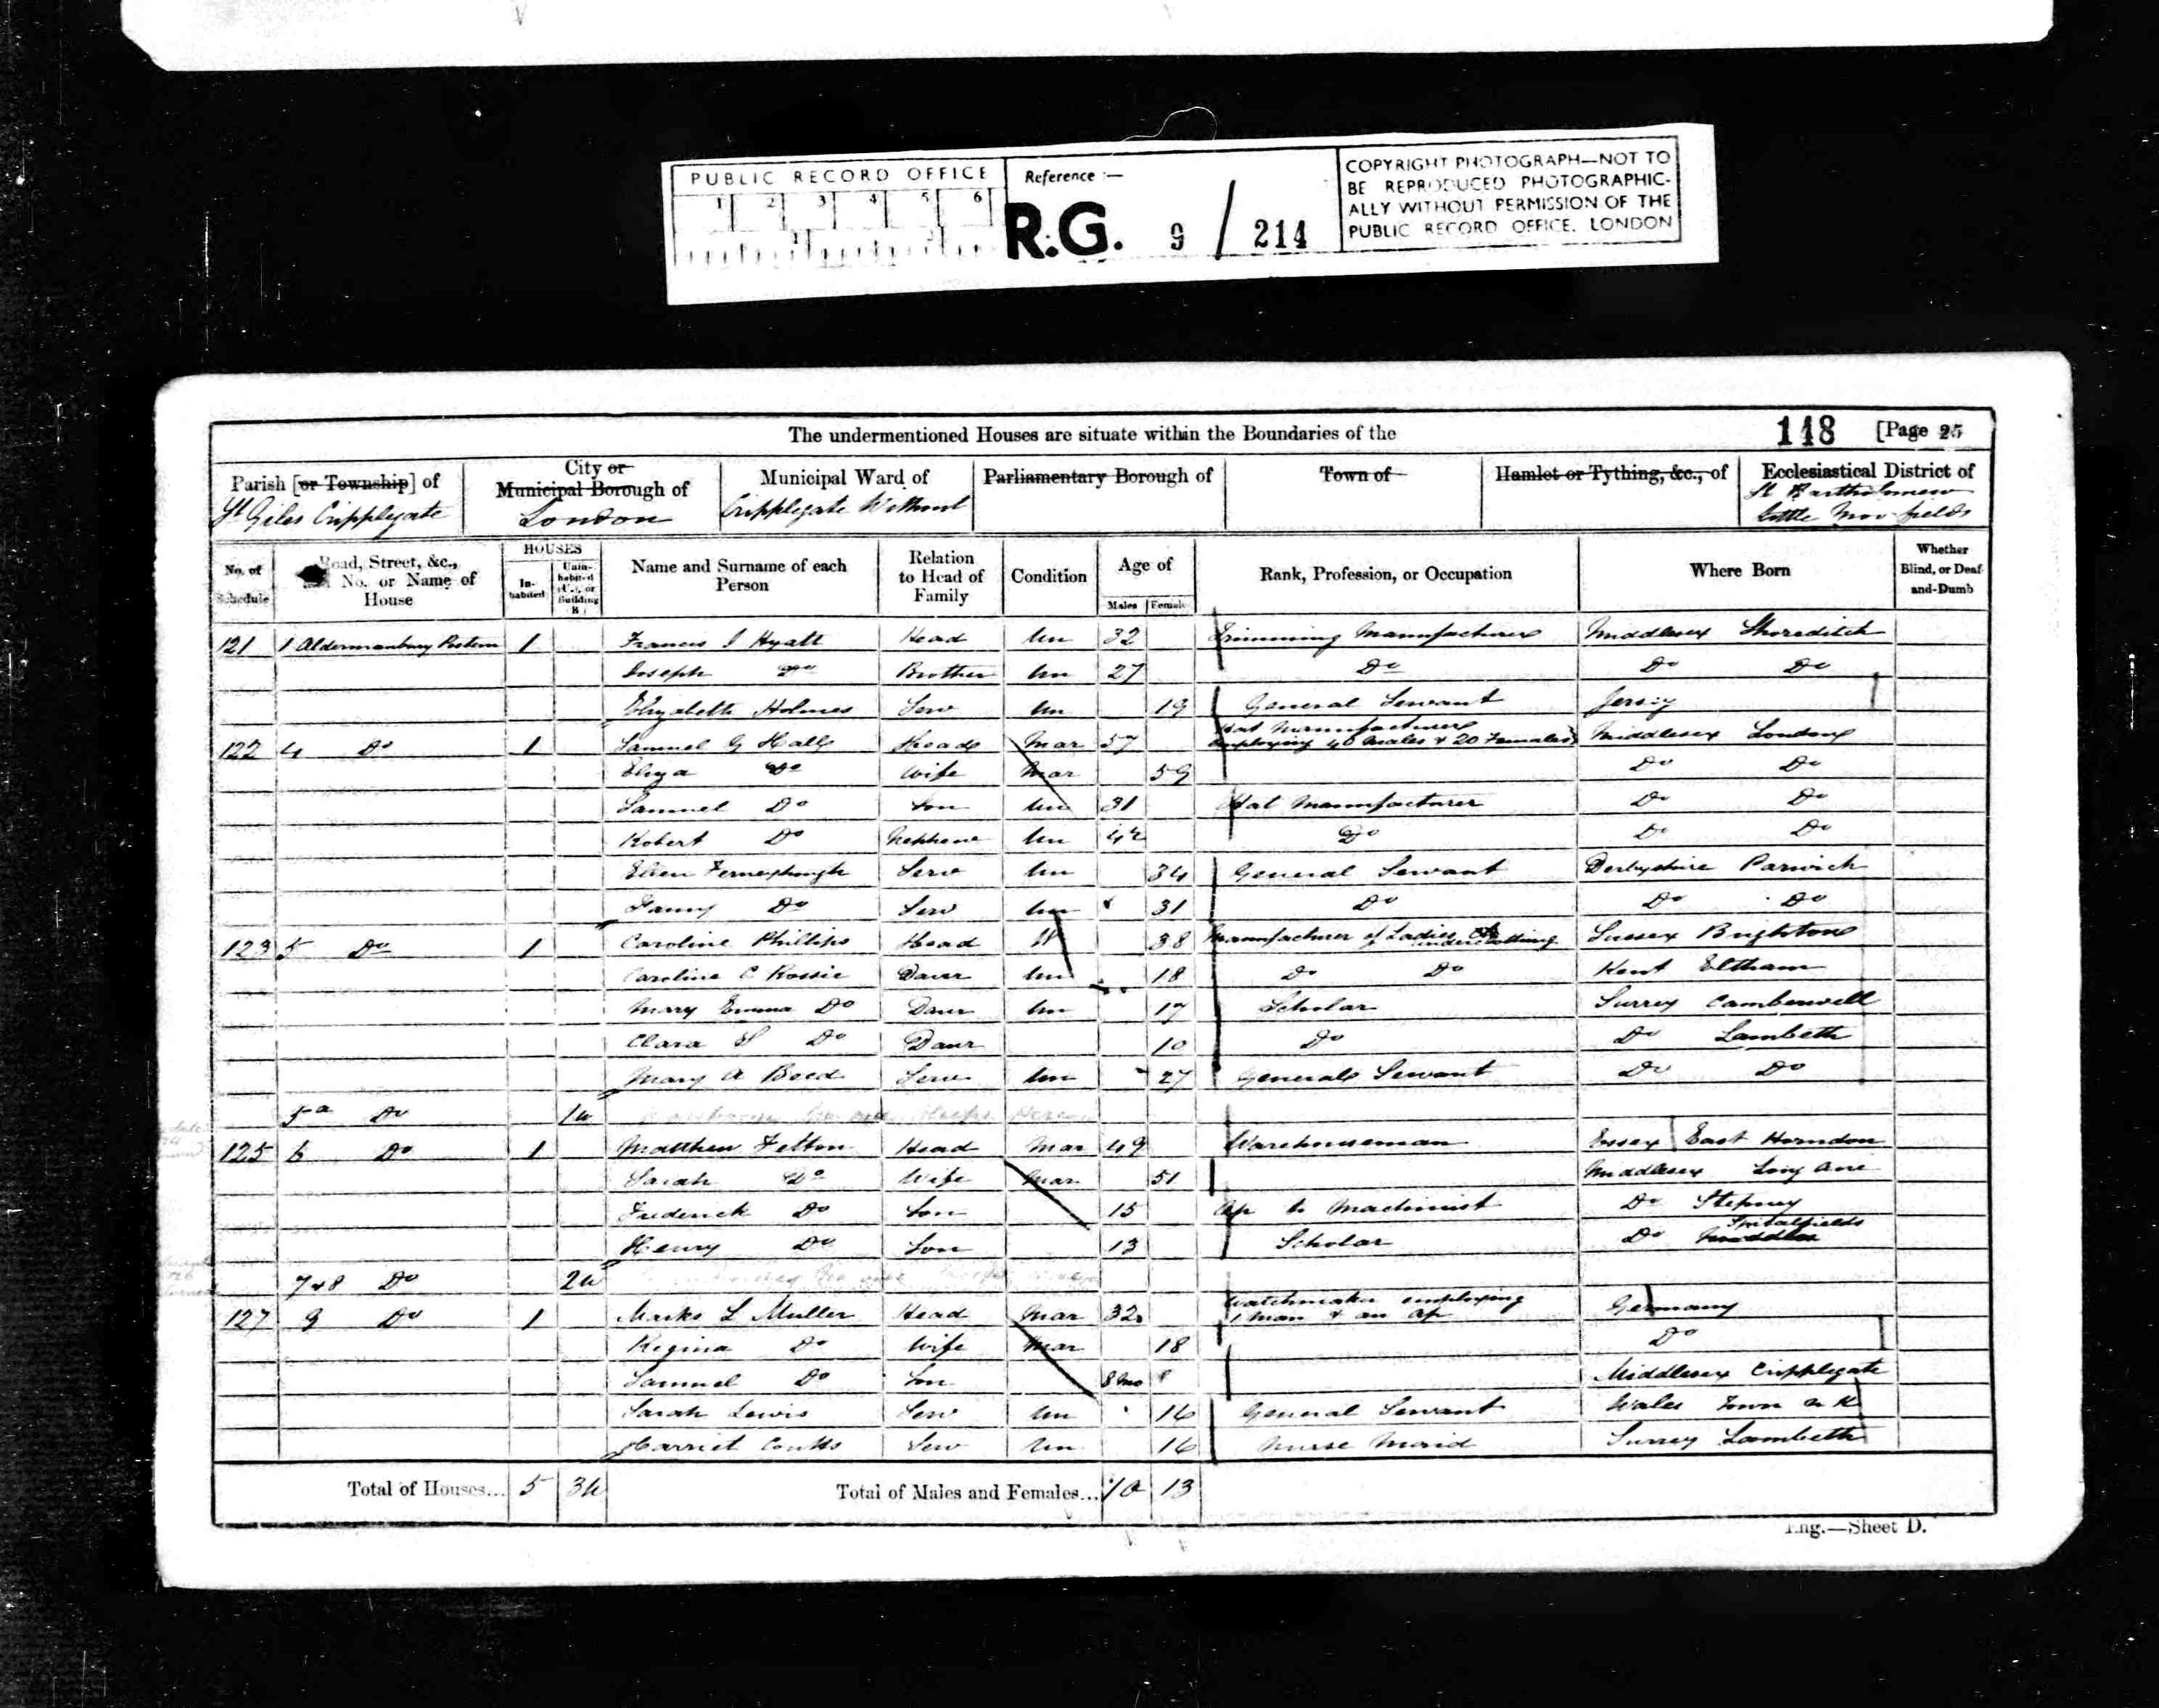 PUBLIC RECORD OFFICE
1 2 3 4 5 6
Reference :—
R.G. 9 / 214
COPYRIGHT PHOTOGRAPH—NOT TO
BE REPRODUCED PHOTOGRAPHIC-
ALLY WITHOUT PERMISSION OF THE
PUBLIC RECORD OFFICE, LONDON
The undermentioned Houses are situate within the Boundaries of the 148 [Page 25
Parish [or Township] of St Giles Cripplegate
City or Municipal Borough of London
Municipal Ward of Cripplegate Without
Parliamentary Borough of
Town of
Hamlet or Tything, &c., of
Ecclesiastical District of St Bartholomew Little Moorfields
No. of Schedule
Road, Street, &c., No. or Name of House
HOUSES
Inhabited
Uninhabited (U.), or Building (B.)
Name and Surname of each Person
Relation to Head of Family
Condition
Age of
Males Females
Rank, Profession, or Occupation
Where Born
Whether Blind, or Deaf-and-Dumb
121 1 Aldermanbury Postern 1 Francis J Hyatt Head Un 32 Trimming Manufacturer Middlesex Shoreditch
Joseph Do Brother Un 27 Do Do Do
Elizabeth Holmes Serv Un 19 General Servant Jersey
122 4 Do 1 Samuel G Hall Head Mar 57 Hat Manufacturer employing 40 Males & 20 Females Middlesex London
Eliza Do Wife Mar 59 Do Do
Samuel Do Son Un 31 Hat Manufacturer Do Do
Robert Do Nephew Un 42 Do Do Do
Ellen Ferneyhough Serv Un 34 General Servant Derbyshire Parwich
Fanny Do Serv Un 31 Do Do Do
123 5 Do 1 Caroline Phillips Head W 38 Manufacturer of Ladies underclothing Sussex Brighton
Caroline C Rossie Daur Un 18 Do Do Kent Eltham
Mary Emma Do Daur Un 17 Scholar Surrey Camberwell
Clara S Do Daur 10 Do Do Lambeth
Mary A Boed Serv Un 27 General Servant Do Do
5a Do 1u
125 6 Do 1 Matthew Felton Head Mar 49 Warehouseman Essex East Horndon
Sarah Do Wife Mar 51 Middlesex Long Acre
Frederick Do Son 15 Ap to Machinist Do Stepney
Henry Do Son 13 Scholar Do Spitalfields
7&8 Do 2u
127 9 Do 1 Marks L Muller Head Mar 32 Watchmaker employing 1 man & an Ap Germany
Regina Do Wife Mar 18 Do
Samuel Do Son 8 mo Middlesex Cripplegate
Sarah Lewis Serv Un 16 General Servant Wales Town n K
Harriet Coutts Serv Un 16 Nurse Maid Surrey Lambeth
Total of Houses... 5 3u Total of Males and Females... 10 13
Eng.—Sheet D.